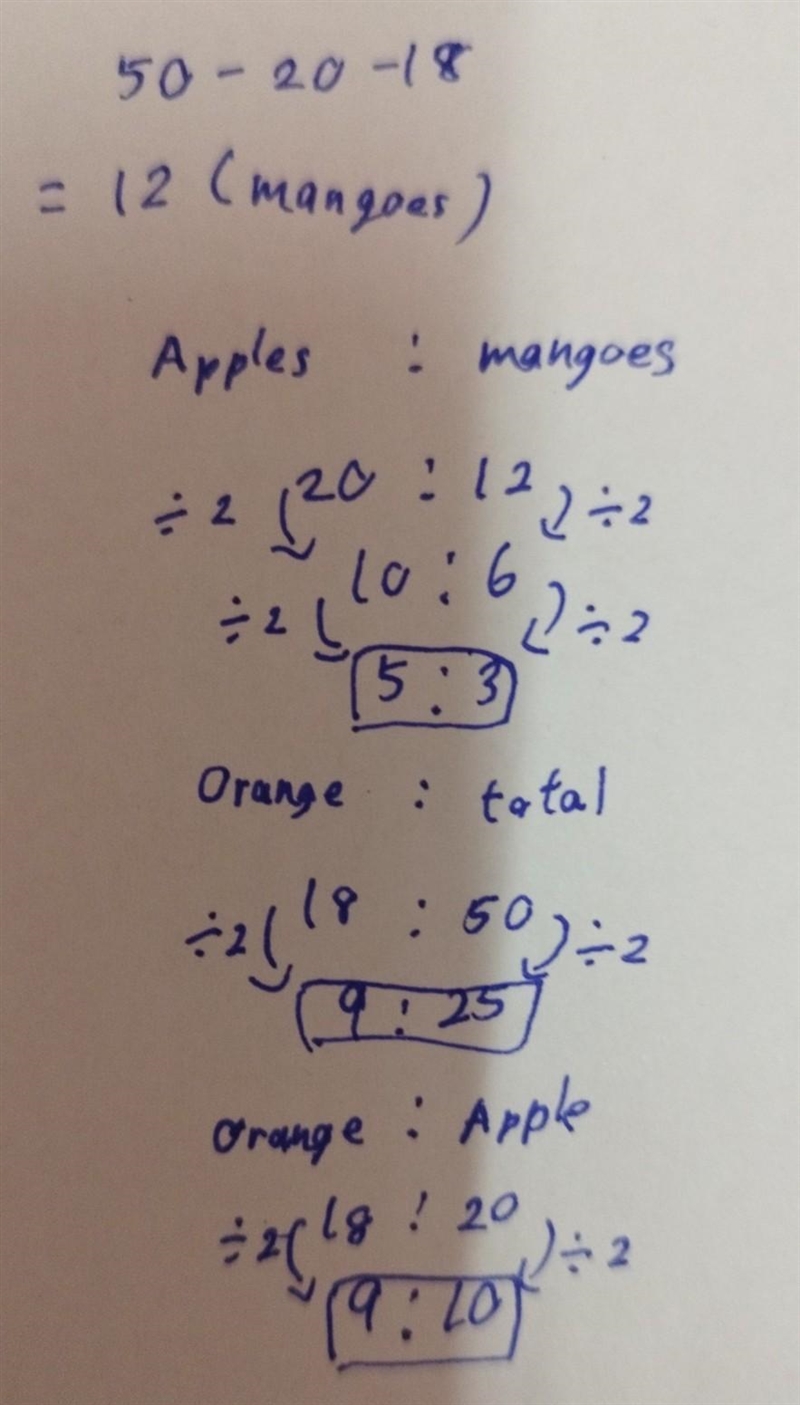 50 - 20 - 18
= 12 (mangoes)
Apples : mangoes
÷2 20 : 12 ÷2
10 : 6
÷2 ÷2
5 : 3
Orange : total
÷2 18 : 50 ÷2
9 : 25
Orange : Apple
÷2 18 : 20 ÷2
9 : 10